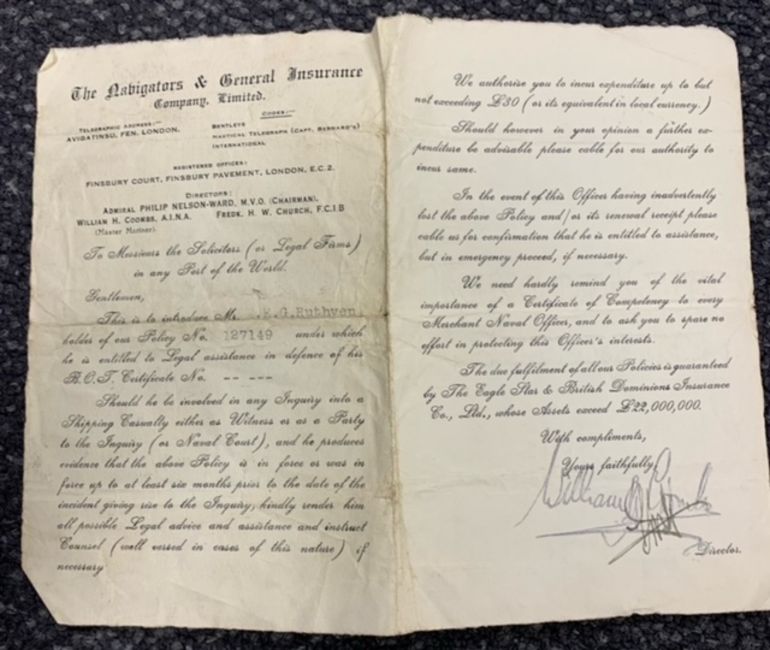 The Navigators & General Insurance
Company, Limited.
TELEGRAPHIC ADDRESS:—
AVIGATINSO, FEN, LONDON.
CODES:—
BENTLEYS
NAUTICAL TELEGRAPH (CAPT. BERNARD'S)
INTERNATIONAL
REGISTERED OFFICES:
FINSBURY COURT, FINSBURY PAVEMENT, LONDON, E.C.2.
DIRECTORS:
ADMIRAL PHILIP NELSON-WARD, M.V.O. (CHAIRMAN).
WILLIAM H. COOMBS, A.I.N.A. FREDK. H. W. CHURCH, F.C.I.B
(Master Mariner).
To Messieurs the Solicitors (or Legal Firms)
in any Port of the World.
Gentlemen,
This is to introduce Mr. E.G.Ruthven
holder of our Policy No. 127149 under which
he is entitled to Legal assistance in defence of his
B.O.T. Certificate No. -- ---
Should he be involved in any Inquiry into a
Shipping Casualty either as Witness or as a Party
to the Inquiry (or Naval Court), and he produces
evidence that the above Policy is in force or was in
force up to at least six months prior to the date of the
incident giving rise to the Inquiry, kindly render him
all possible Legal advice and assistance and instruct
Counsel (well versed in cases of this nature) if
necessary
We authorise you to incur expenditure up to but
not exceeding £30 (or its equivalent in local currency.)
Should however in your opinion a further ex-
penditure be advisable please cable for our authority to
incur same.
In the event of this Officer having inadvertently
lost the above Policy and/or its renewal receipt please
cable us for confirmation that he is entitled to assistance,
but in emergency proceed, if necessary.
We need hardly remind you of the vital
importance of a Certificate of Competency to every
Merchant Naval Officer, and to ask you to spare no
effort in protecting this Officer's interests.
The due fulfilment of all our Policies is guaranteed
by The Eagle Star & British Dominions Insurance
Co., Ltd., whose Assets exceed £22,000,000.
With compliments,
Yours faithfully,
Director.